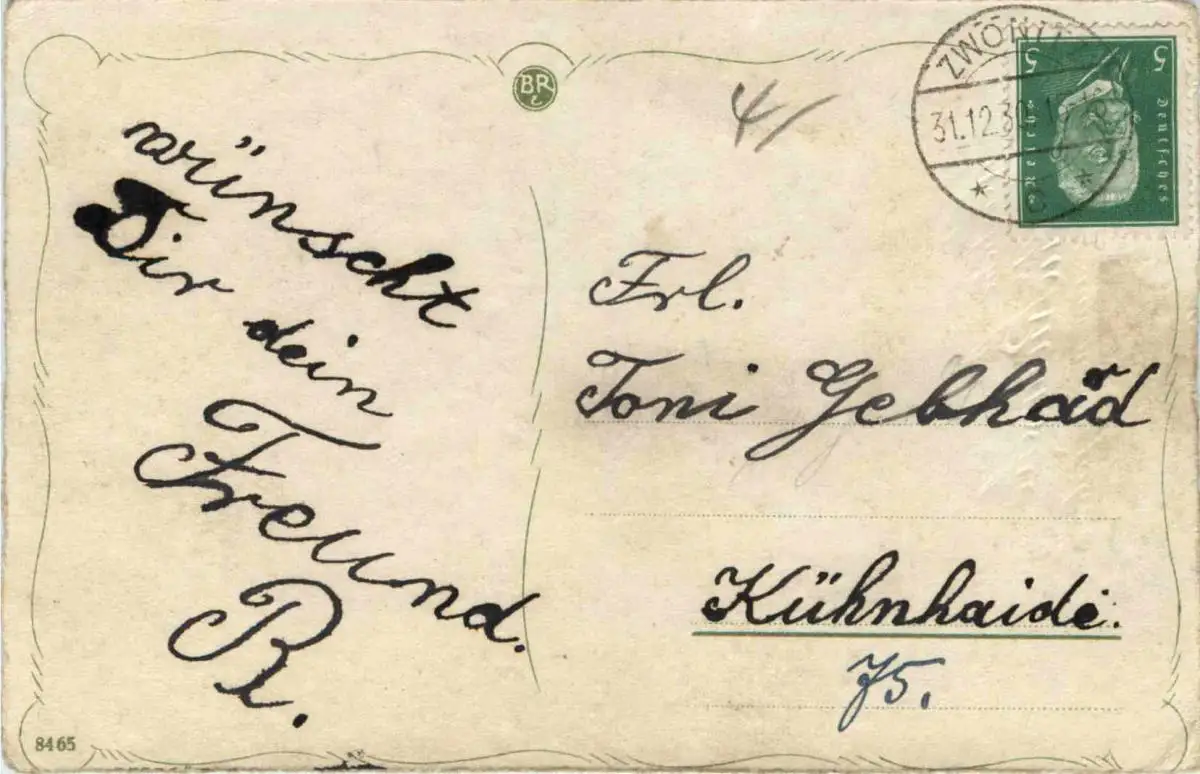 wünscht
Dir dein
Freund.
R.
BR
Frl.
Toni Gebhard
Kühnhaide.
75.
ZWÖNITZ
31.12.30.
5 5
Deutsches
Reich
8465